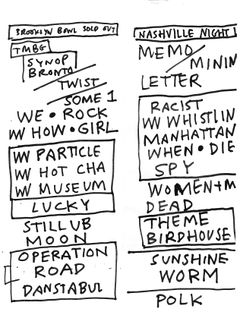 BROOKLYN BOWL SOLD OUT
TMBG
SYNOP
BRONTO
TWIST
SOME 1
WE • ROCK
W HOW • GIRL
W PARTICLE
W HOT CHA
W MUSEUM
LUCKY
STILLUB
MOON
OPERATION
ROAD
DANSTABUL
NASHVILLE NIGHT
MEMO
MININ
LETTER
RACIST
W WHISTLIN
MANHATTAN
WHEN • DIE
SPY
WOMEN+M
DEAD
THEME
BIRDHOUSE
SUNSHINE
WORM
POLK